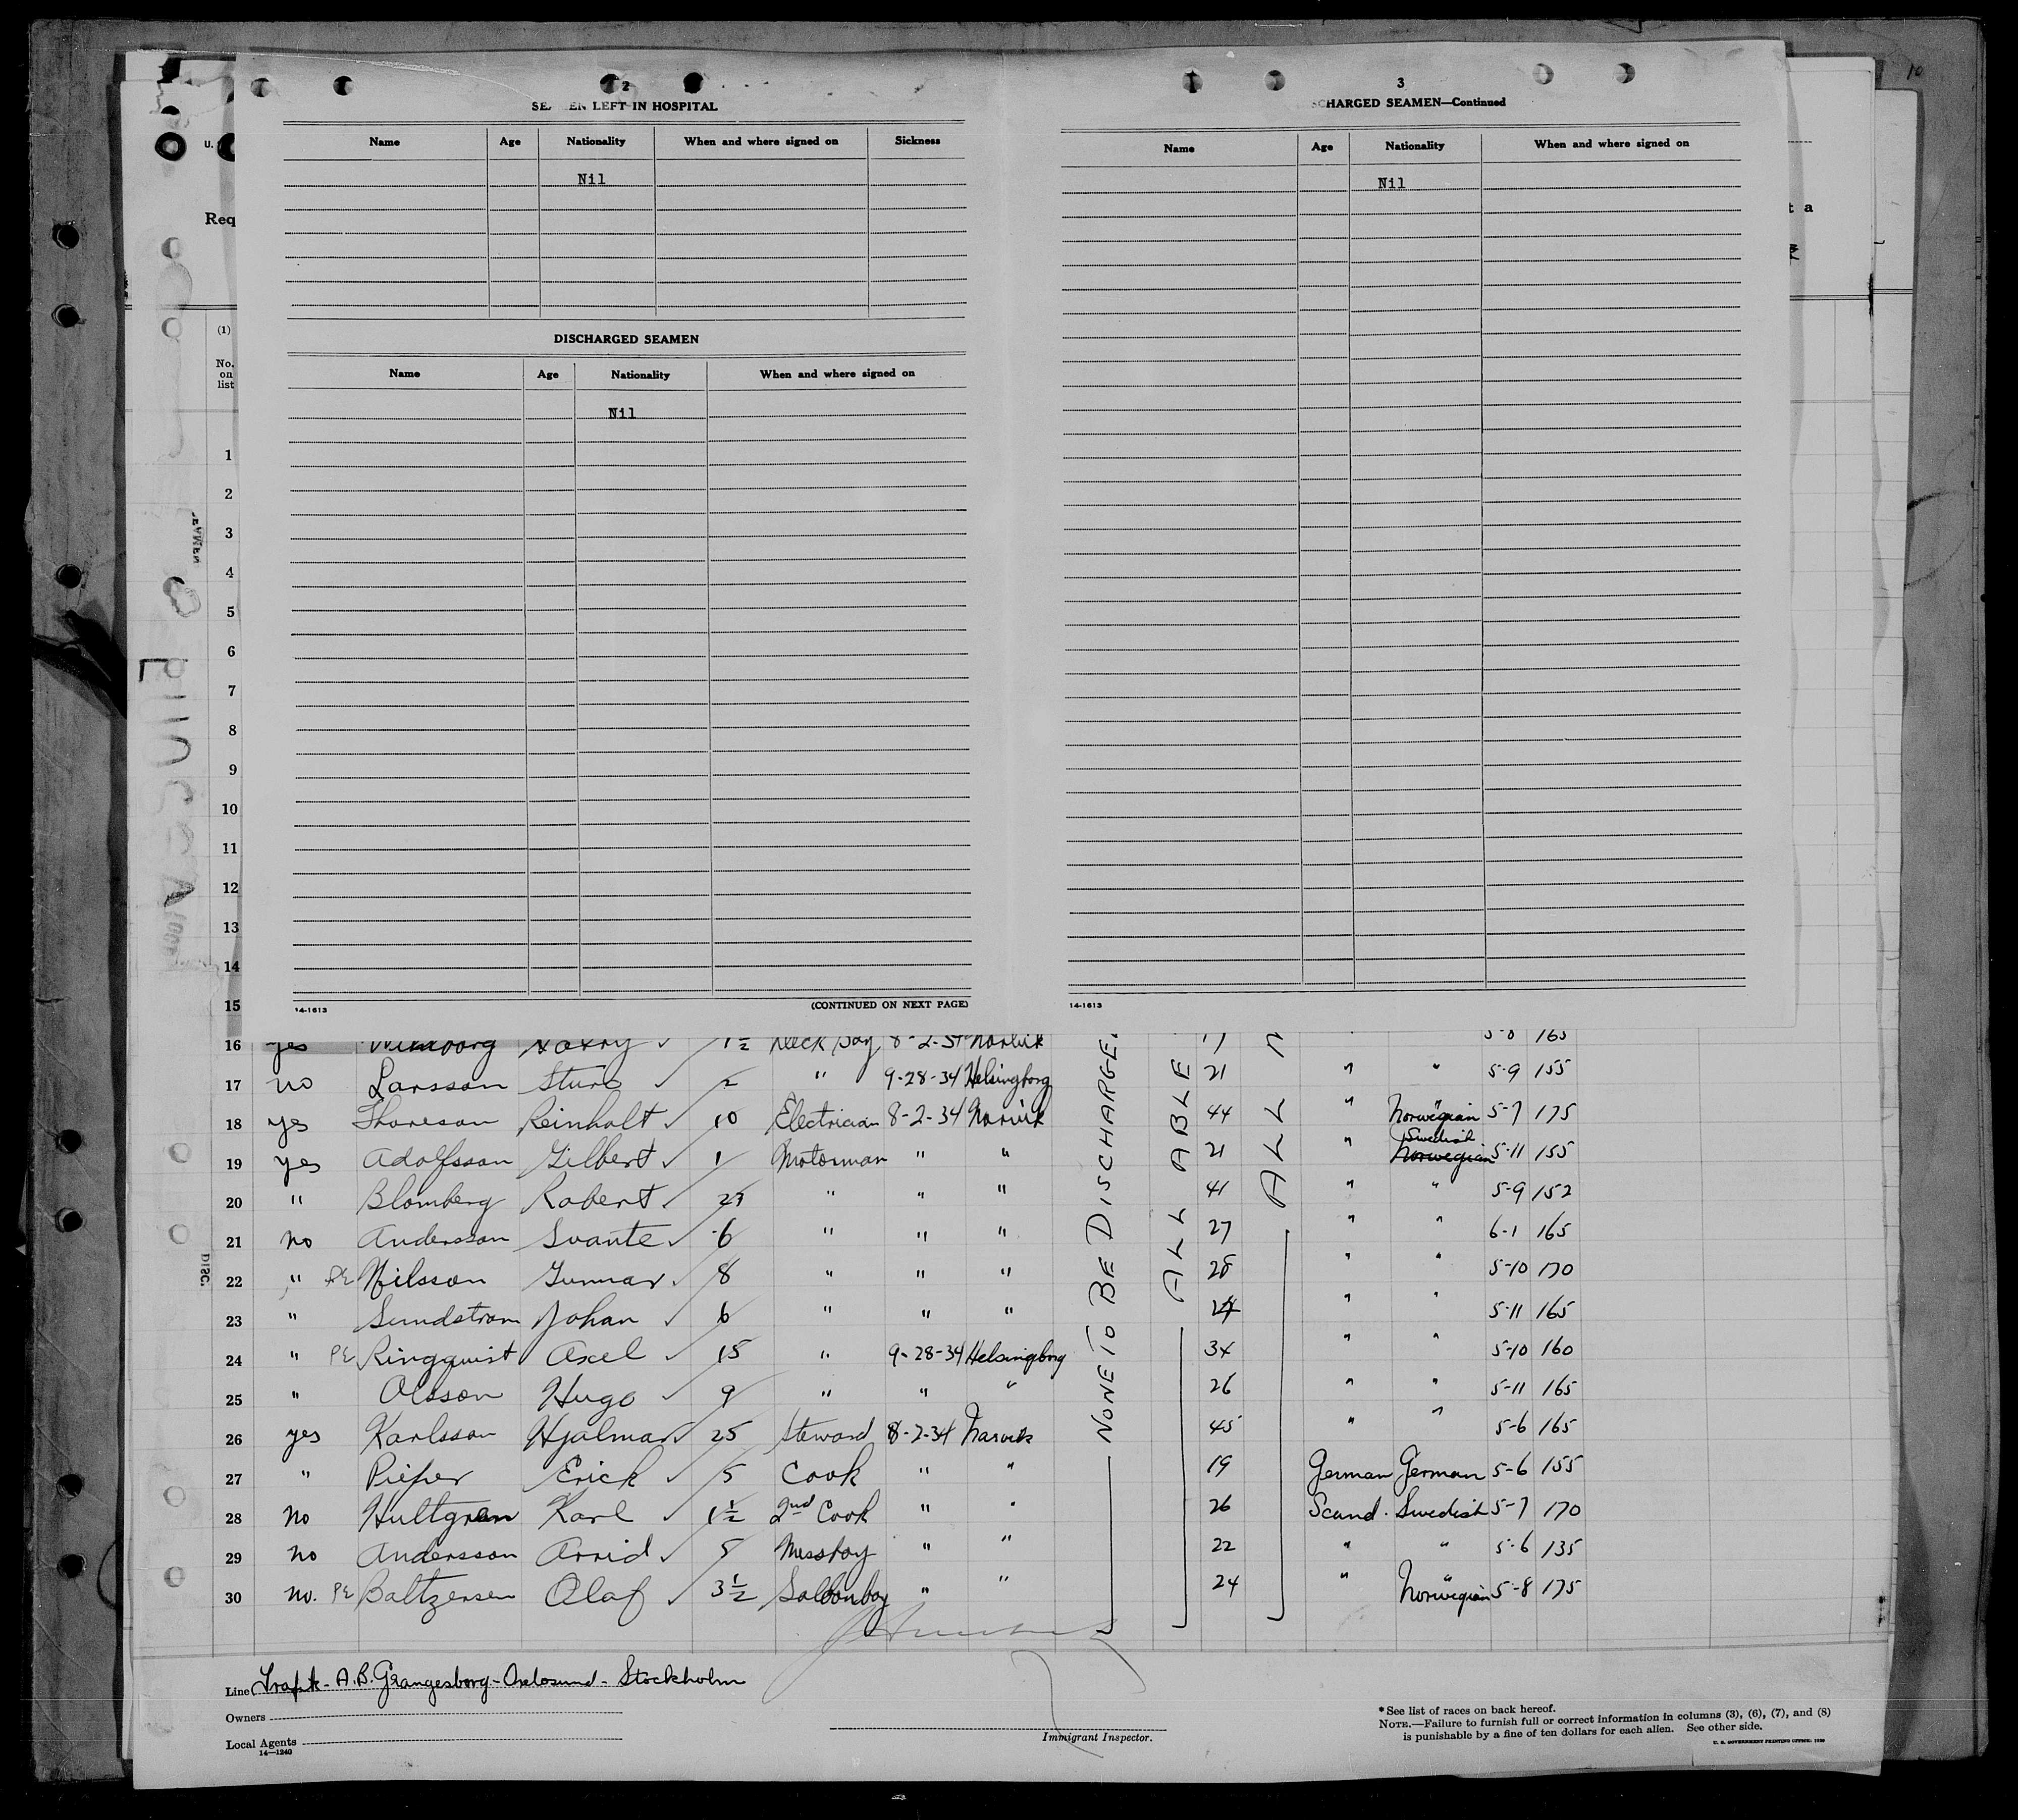 10
2
SE EN LEFT IN HOSPITAL
Name Age Nationality When and where signed on Sickness
Nil
DISCHARGED SEAMEN
Name Age Nationality When and where signed on
Nil
(CONTINUED ON NEXT PAGE)
14-1613
3
CHARGED SEAMEN—Continued
Name Age Nationality When and where signed on
Nil
14-1613
U.
Req
t a
(1)
No.
on
list
1
2
3
4
5
6
7
8
9
10
11
12
13
14
15
DISC.
NONE TO BE DISCHARGE
ALL ABLE
ALL
16 yes 1½ Deck Boy 8-2-34 Narvik 17 5-8 165
17 no Larsson Sture 2 " 9-28-34 Helsingborg 21 " " 5-9 155
18 yes Thoreson Reinholt 10 Electrician 8-2-34 Narvik 44 " Norwegian 5-7 175
19 yes Adolfsson Gilbert 1 Motorman " " 21 " Swedish Norwegian 5-11 155
20 " Blomberg Robert 23 " " " 41 " " 5-9 152
21 no Andersson Svante 6 " " " 27 " " 6-1 165
22 " PE Nilsson Gunnar 8 " " " 28 " " 5-10 170
23 " Sundstrom Johan 6 " " " 24 " " 5-11 165
24 " PE Ringquist Axel 15 " 9-28-34 Helsingborg 34 " " 5-10 160
25 " Olsson Hugo 9 " " " 26 " " 5-11 165
26 yes Karlsson Hjalmar 25 Steward 8-2-34 Narvik 45 " " 5-6 165
27 " Pieper Erick 5 Cook " " 19 German German 5-6 155
28 No Hultgren Karl 1½ 2nd Cook " " 26 Scand. Swedish 5-7 170
29 no Andersson Arvid 5 Messboy " " 22 " " 5-6 135
30 no. PE Baltzersen Olaf 3½ Saloonboy " " 24 " Norwegian 5-8 175
Line Trafik - A.B. Grangesborg - Oxelosund - Stockholm
Owners
Local Agents
14—1240
Immigrant Inspector.
* See list of races on back hereof.
NOTE.—Failure to furnish full or correct information in columns (3), (6), (7), and (8)
is punishable by a fine of ten dollars for each alien. See other side.
U. S. GOVERNMENT PRINTING OFFICE: 1930